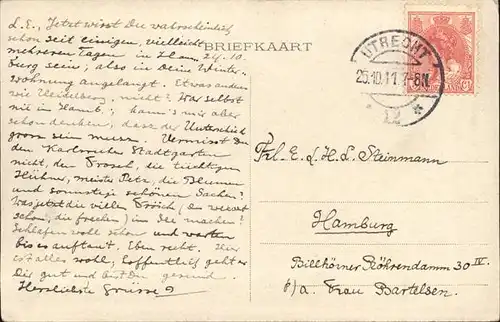 L. E., Jetzt wirst Du wahrscheinlich
schon seit einigen, vielleicht
mehreren Tagen in 24.10.
burg sein, also in Deine Winter-
wohnung angelangt. Etwas anders
wie Heidelberg, nicht? War selbst
mir in Hamb.; kann's mir aber
schon denken, dass der Unterschied
gross sein muss. Vermisst Du
den Karlsruher Stadtgarten
nicht, den Frosch, die tüchtigen
Hühner, Meister Petz, die Blumen
und sonstige schönen Sachen?
Was jetzt die vielen Frösch (Du weisst
schon, die frechen) im See machen?
Schlafen wohl schon und warten
bis es auftaut. Eben recht. Hier
ist alles wohl, hoffentlich geht es
Dir gut und bist Du gesund.
Herzlichste Grüsse
BRIEFKAART
UTRECHT
25.10.11. 7-8N
* 12 *
Frl. E. d. H. L. Steinmann
Hamburg
Billhörner Röhrendamm 30 IV.
p/a. Frau Bartelsen.